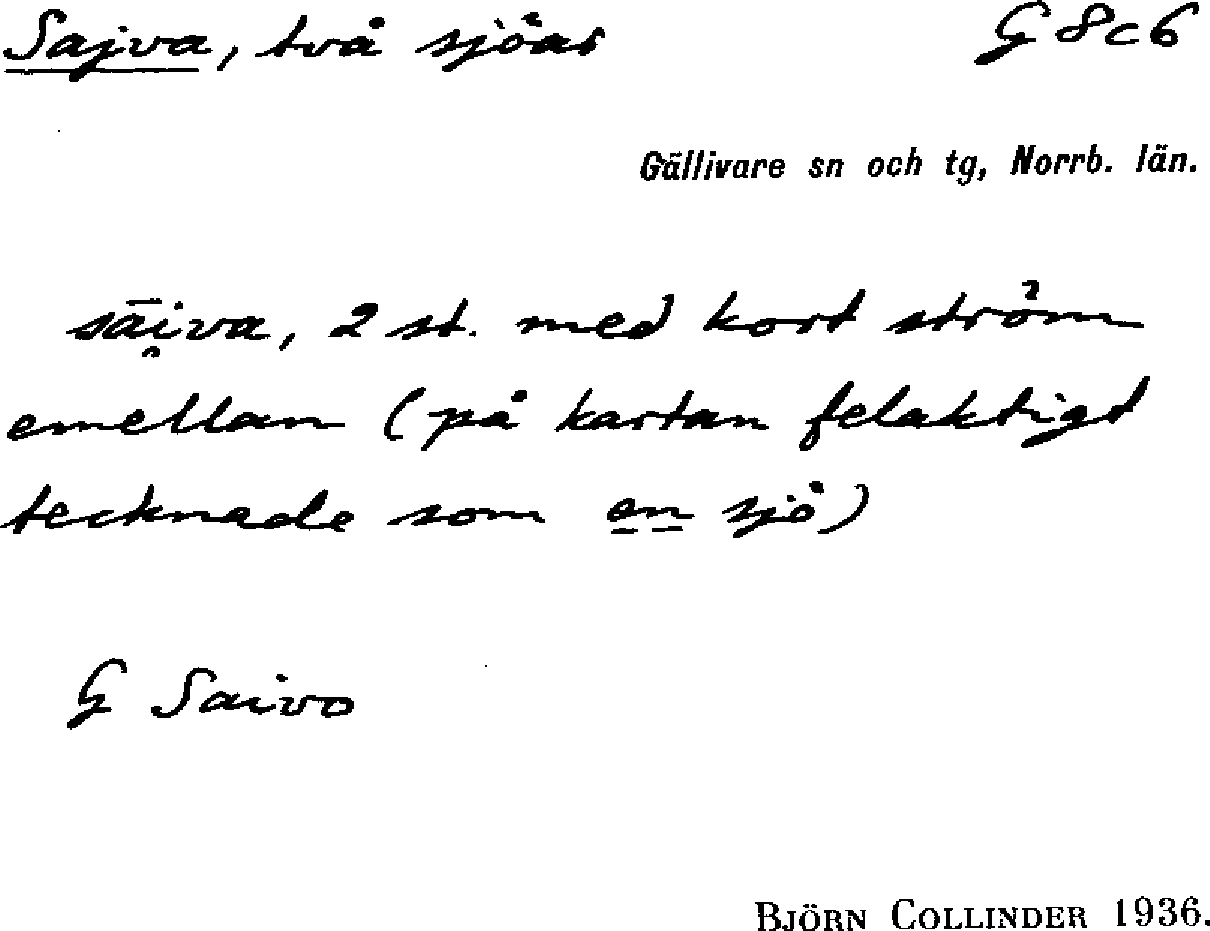 Sajva, två sjöar G 8c6
Gällivare sn och tg, Norrb. län.
sāi̯va, 2 st. med kort ström
emellan (på kartan felaktigt
tecknade som en sjö)
G Saivo
BJÖRN COLLINDER 1936.